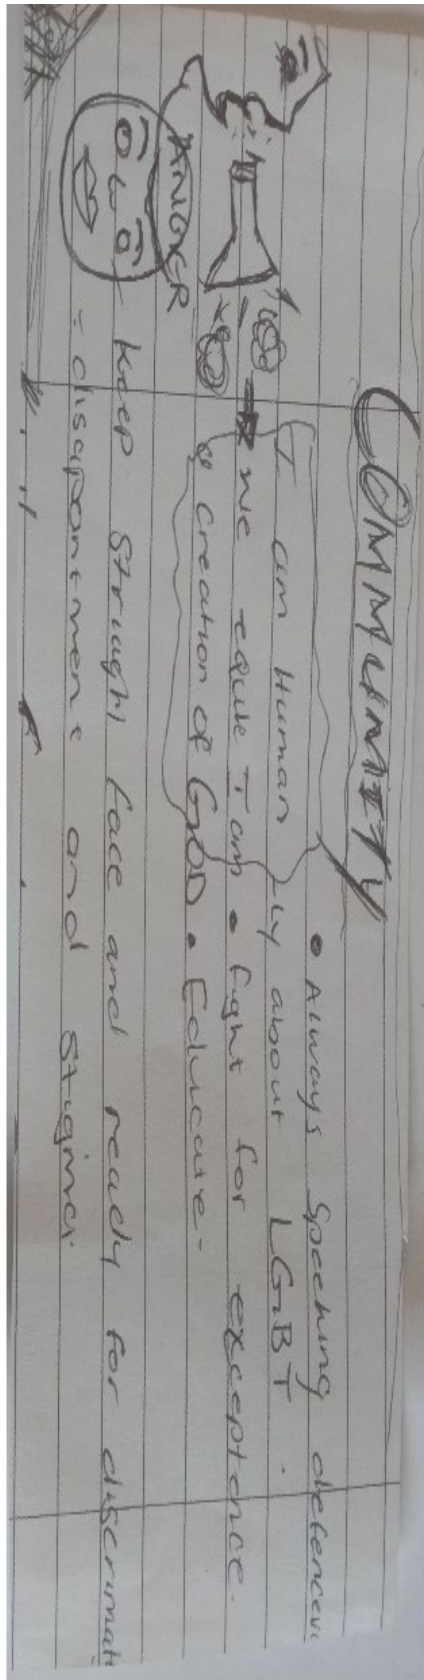 COMMUNITY
• Always Speeking defencev
I am Human ly about LGBT.
We equle I am • fight for exceptence.
a creation of GOD • Educate-
ANGER
- keep straight face and ready for discrimati
- disapointment and stigma.